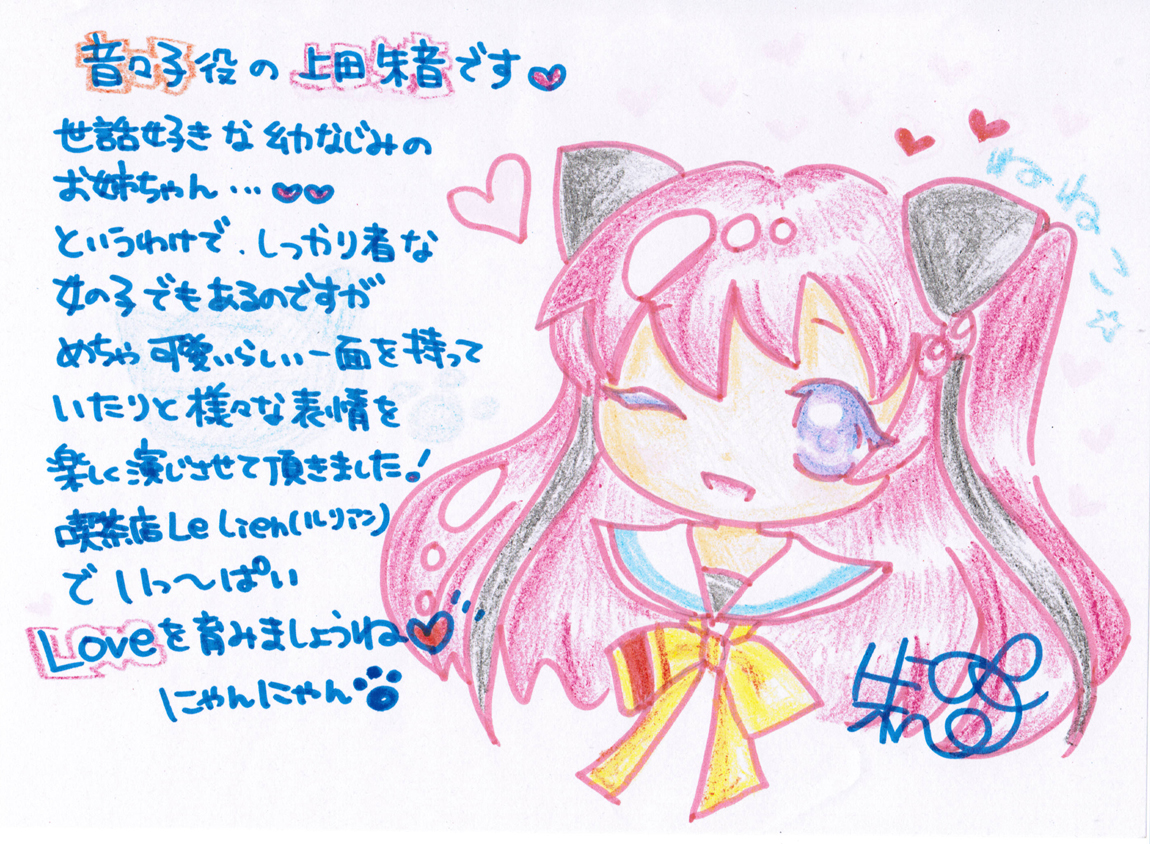 音々子役の上田朱音です
世話好きな幼なじみの
お姉ちゃん…
というわけで、しっかり者な
女の子でもあるのですが
めちゃ可愛いらしい一面を持って
いたりと様々な表情を
楽しく演じさせて頂きました!
喫茶店Le Lien(ルリアン)
でいっ〜ぱい
Loveを育みましょうね
にゃんにゃん
ねねこ☆